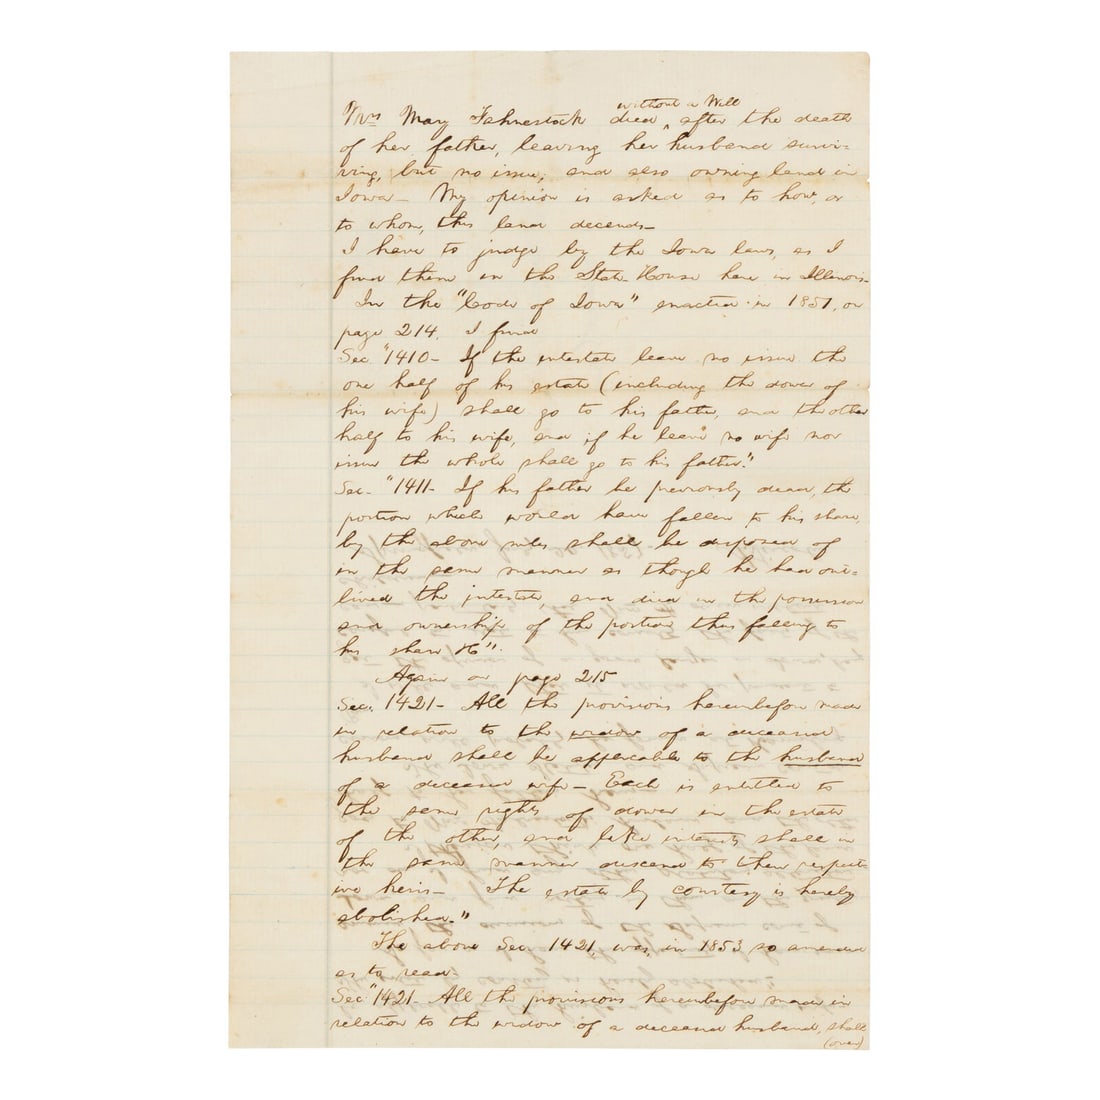 Mrs Mary Fahnestock died ^without a Will^ after the death
of her father, leaving her husband survi-
ving, but no issue, and also owning land in
Iowa— My opinion is asked as to how, or
to whom, this land decends—
I have to judge by the Iowa laws, as I
find them in the State-House here in Illinois—
In the "Code of Iowa" enacted in 1851, on
page 214, I find
Sec. "1410— If the intestate leave no issue the
one half of his estate (including the dower of
his wife) shall go to his father, and the other
half to his wife, and if he leave no wife nor
issue the whole shall go to his father."
Sec— "1411— If his father be previously dead, the
portion which would have fallen to his share,
by the above rules shall be disposed of
in the same manner as though he had out-
lived the intestate, and died in the possession
and ownership of the portion thus falling to
his share &c".
Again on page 215
Sec. "1421— All the provisions hereinbefore made
in relation to the widow of a deceased
husband shall be applicable to the husband
of a deceased wife— Each is entitled to
the same rights of dower in the estate
of the other, and like interests shall in
the same manner descend to their respect-
ive heirs— The estate by courtesy is hereby
abolished."
The above Sec. 1421, was, in 1853 so amended
as to read—
Sec "1421— All the provisions hereinbefore made in
relation to the widow of a deceased husband, shall
(over)